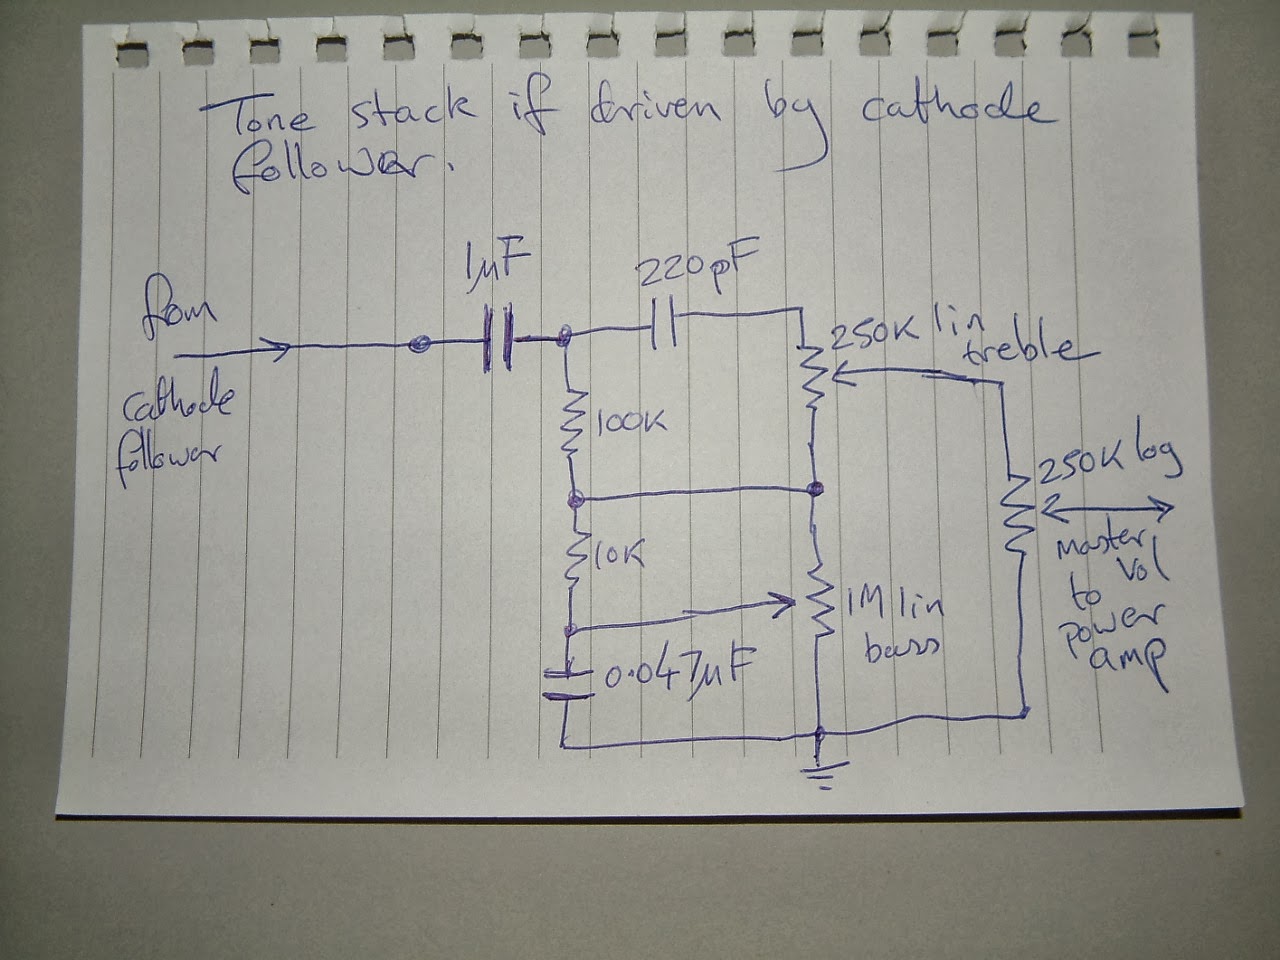 Tone stack if driven by cathode
follower.
1µF
220pF
from
cathode
follower
250K lin
treble
100K
250K log
master
vol
to
power
amp
10K
1M lin
bass
0.047µF